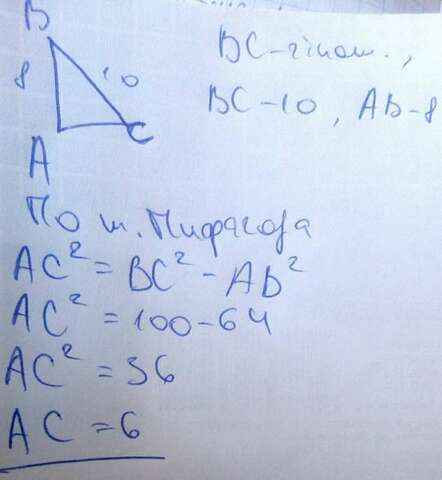 B
8 10
A C
BC-гіпот.,
BC-10, AB-8
По т. Пифагора
AC² = BC² - AB²
AC² = 100-64
AC² = 36
AC = 6